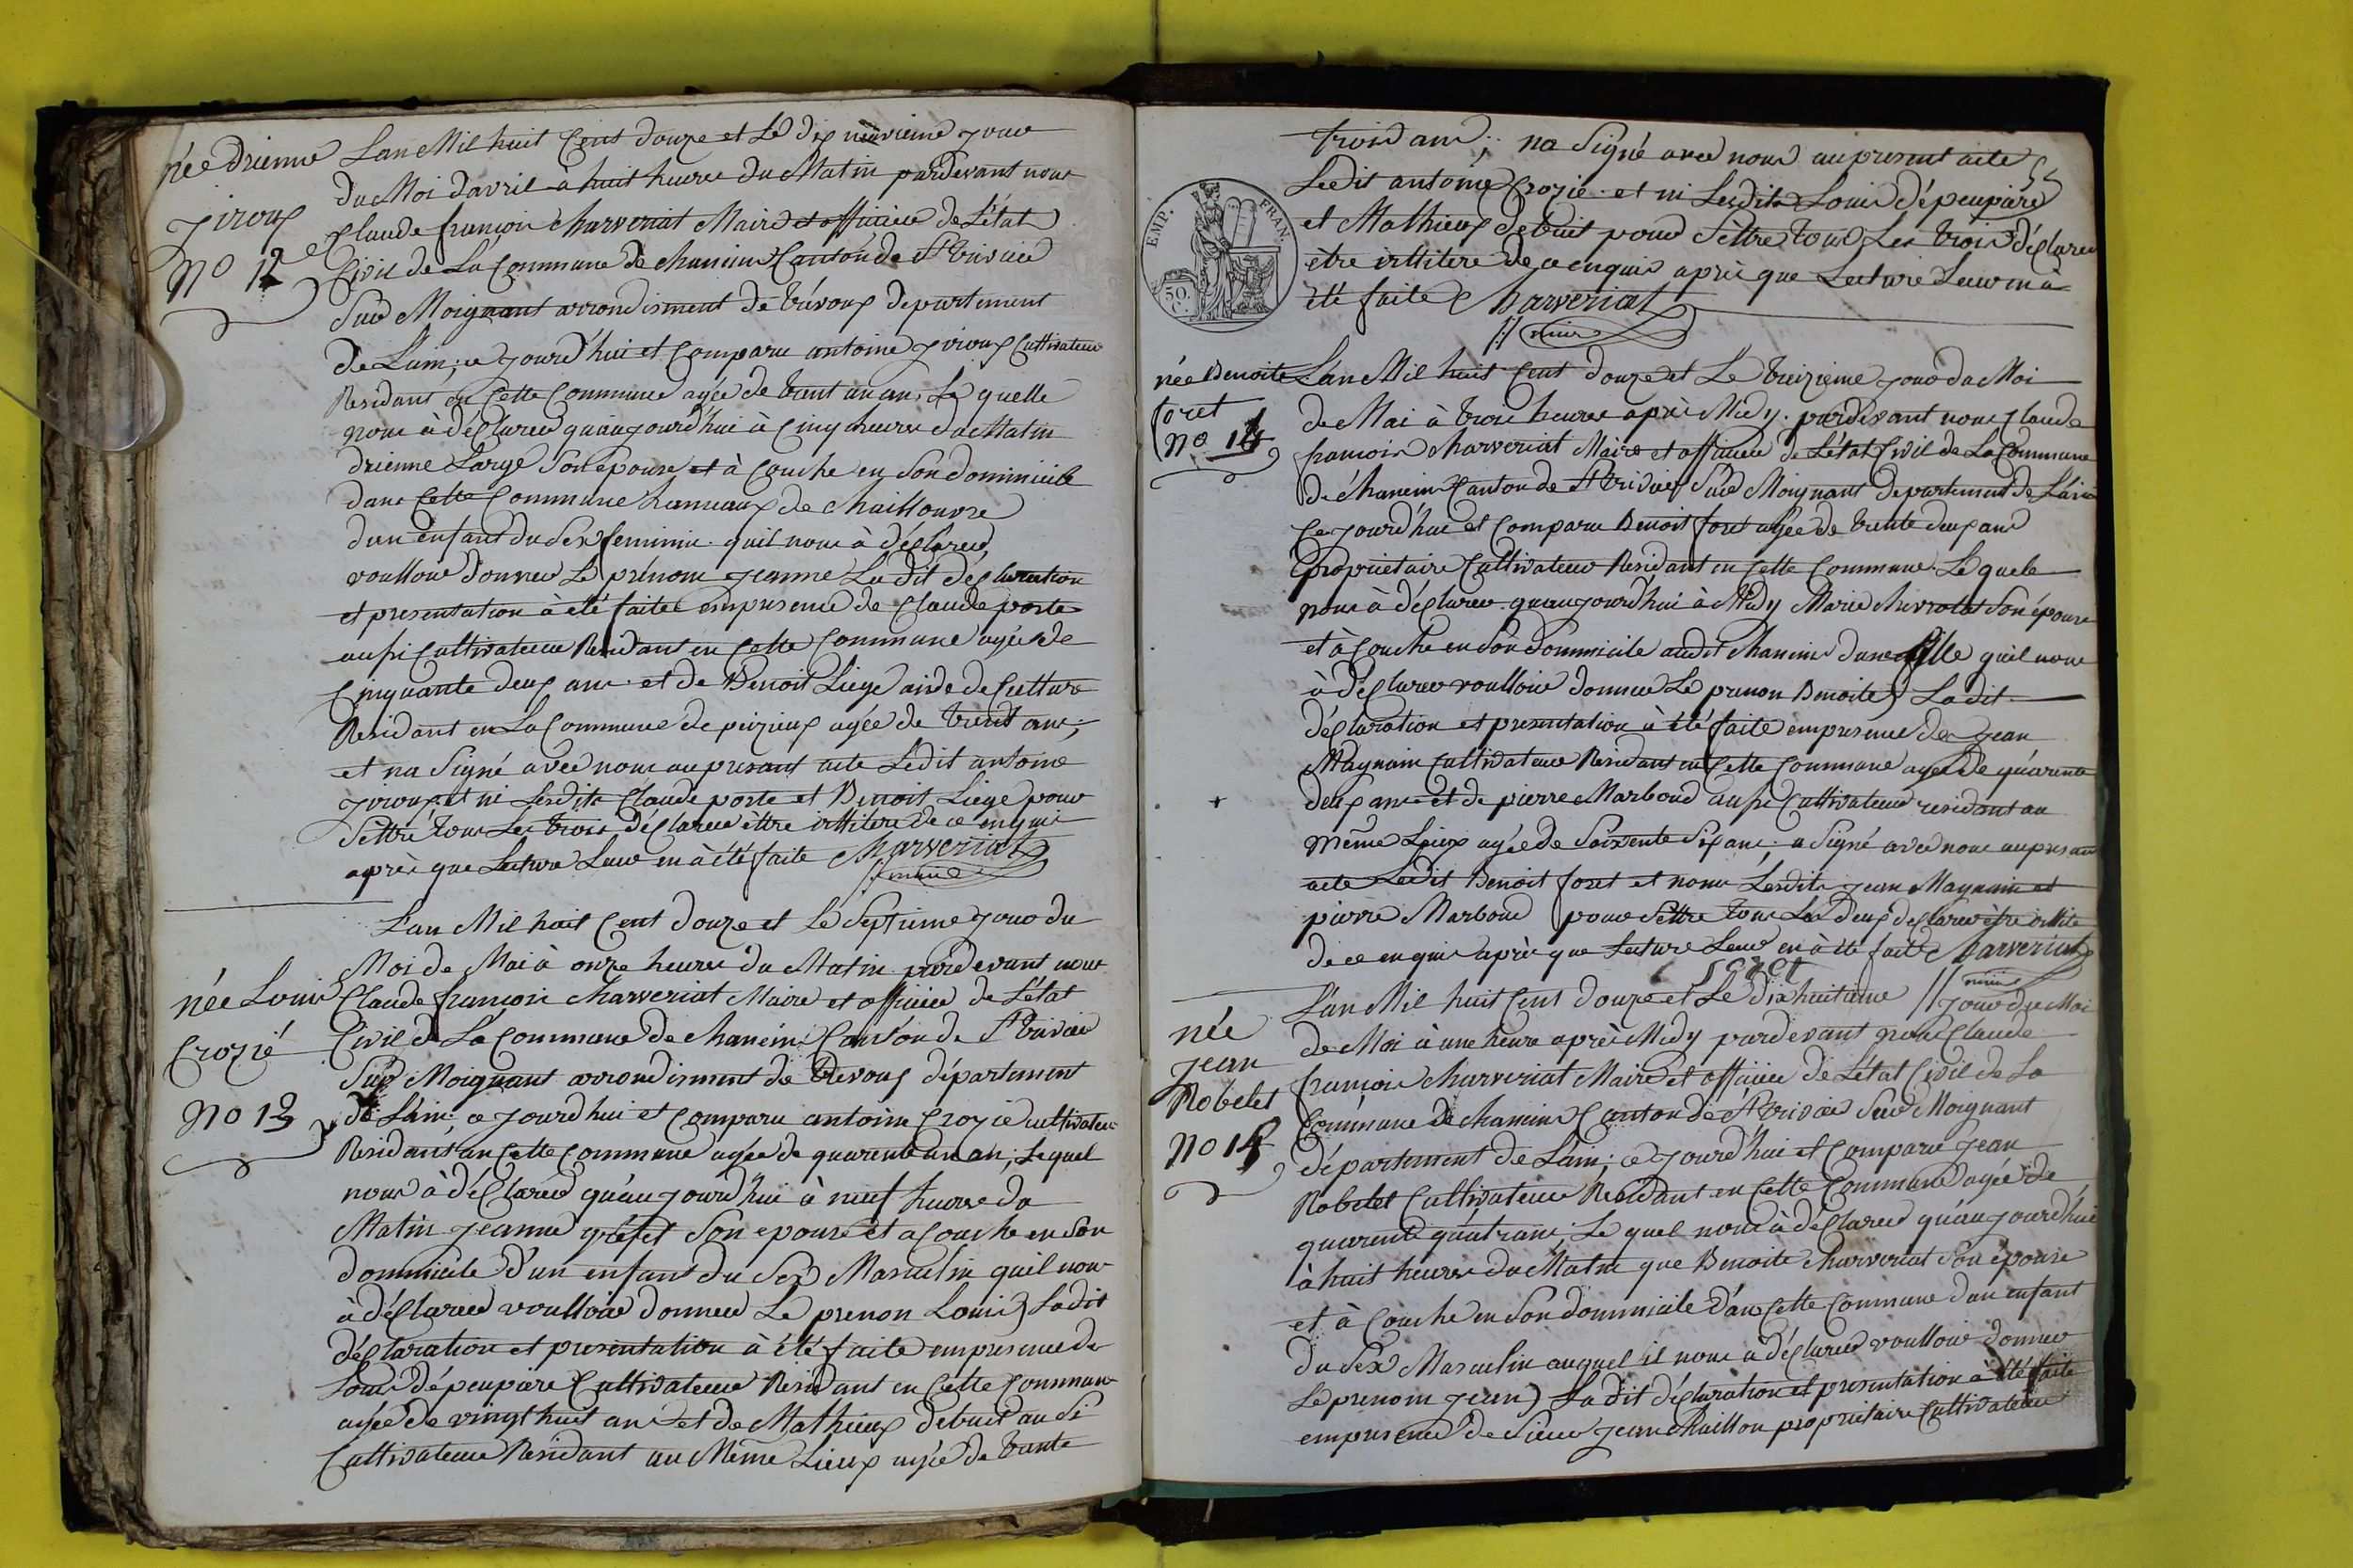 née drienne
Jiroux
No 12
Lan Mil huit Cent douze et Le dix neuvieme Jour
du Moi davril à huit heures du Matin pardevant nous
Claude françois Charveriat Maire et officier de Létat
Civil de La Commune de Chanein Canton de St trivier
Sur Moignant arrondisment de trévoux departement
de Lain; ce jourd'hui et Comparu antoine Jiroux Cultivateur
Residant en Cette Commune agée de trent un an, Le quelle
nous à déClarer quaujourdhui à Cinq heures du Matin
drienne Large Son epouse et à Couche en Son dominicile
dans Cette Commune hameaux de Chaillouvre
dun enfant du Sex feminin quil nous à déClarer
voulloir donner Le prénom Jeanne La dit déClaration
et presentation à été faite empresence de Claude poste
aussi Cultivateur Residant en Cette Commune agée de
Cinquante deux ans et de Benoit Liege aide de Culture
Residant en La Commune de pizieux agée de trent ans;
et na Signé avec nous au presant acte Ledit antoine
Jiroux et ni Lesdits Claude poste et Benoit Liege pour
Settre tous Les trois déClarer êttre illitere de ce enquis
après que Lecture Leur en à été faite Charveriat
maire
née Louis
Crozié
No 13
Lan Mil huit Cent douze et Le Septieme Jour du
Moi de Mai à onze heures du Matin pardevant nous
Claude françois Charveriat Maire et officier de Létat
Civil de La Commune de Chanein Canton de St trivier
Sur Moignant arrondisment de trevoux département
de Lain; ce jourdhui et Comparu antoine Crozié cultivateur
Residant en Cette Commune agée de quarente un an; Lequel
nous à déClarer quaujourdhui à neuf heures du
Matin Jeanne gréfet Son epouse et a Couche en Son
dominicile d'un enfant du Sex Masculin quil nous
à déClarer voulloir donner Le prenon Louis) Ladit
déClaration et presentation à été faite empresence de
Louis dépeupière Cultivateur Residant en Cette Commune
agée de vingt huit an et de Mathieux debuit au Si
Cultivateur Residant au Même Lieux agée de trante
trois ans; na Signé avec nous au present acte
Ledit antoine Crozié et ni Lesdits Louis dépeupière
et Mathieux debuit pour Settre tous Les trois déClarer
être illitere de ce enquis après que Lecture Leur en à
été faite Charveriat
maire
EMP. FRAN.
50. C.
née Benoite
foret
No 14
Lan Mil huit Cent douze et Le treizieme Jour du Moi
de Mai à trois heures après Midy. pardevant nous Claude
françois Charveriat Maire et officier de Létat Civil de La Commune
de Chanein Canton de St trivier Sur Moignant departement de Lain
Ce jourd'hui et Comparu Benoit foret agée de trente deux ans
propriétaire Cultivateur Residant en Cette Commune. Le quele
nous à déClarer quaujourdhui à Midy Marie Chevrolat Son épouse
et à Couche en Son dominicile audit Chanein dune fille quil nous
à déClarer voulloir donner Le prenon Benoite) Ladit
déClaration et presentation à été faite empresence de Jean
Magnain Cultivateur Residant en Cette Commune agée de quarente
deux ans et de pierre Marboud aussi Cultivateur residant au
même Lieux agée de Soixente Six ans; a Signé avec nous au presant
acte Ledit Benoit foret et nons Lesdits Jean Magnain et
pierre Marboud pour Settre tous Les deux déClarer être illite
de ce enquis après que Lecture Leur en à été faite Charveriat
foret
maire
née
Jean
Robelet
No 15
Lan Mil huit Cent douze et Le dix huitieme Jour du Moi
de Mai à une heure après Midy pardevant nous Claude
françois Charveriat Maire et officier de Létat Civil de La
Commune de Chanein Canton de St trivier Sur Moignant
département de Lain; ce jourd'hui et Comparu Jean
Robelet Cultivateur Residant en Cette Commune agée de
quarente quatrans; Le quel nous à déClarer quaujourdhui
à huit heures du Matin que Benoite Charveriat Son épouse
et à Couche en Son dominicile dans Cette Commune dun enfant
du Sex Masculin auquel il nous a déClarer voulloir donner
Le prenom Jean) La dit déClaration et presentation à été faite
empresence de Sieur Jean Chaillon propriétaire Cultivateur